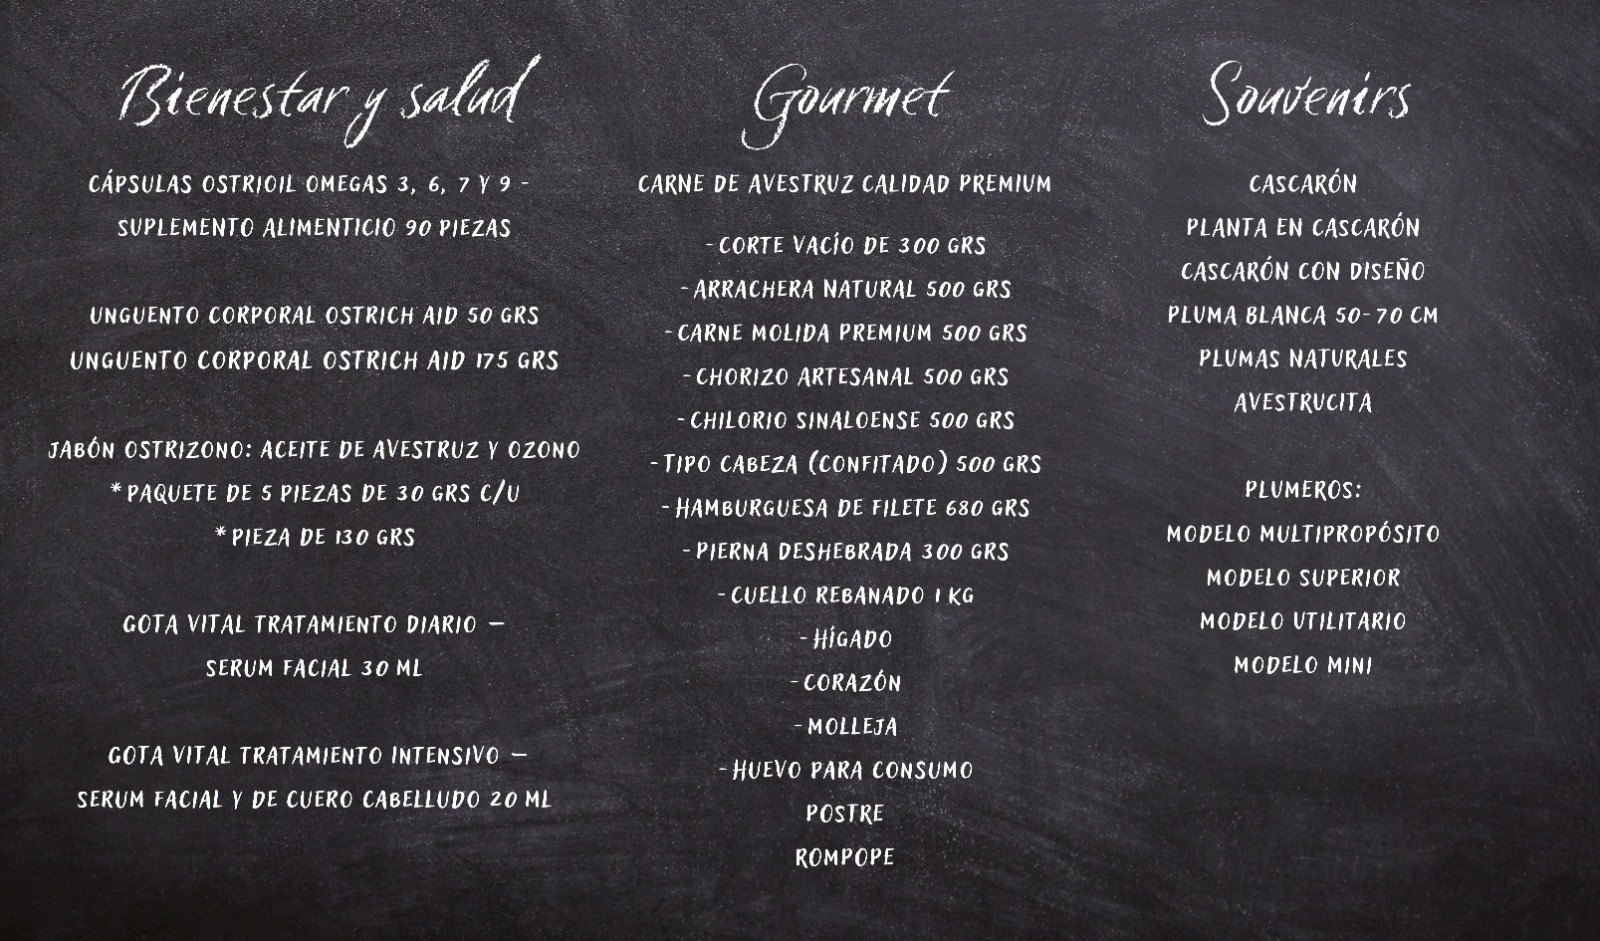 Bienestar y salud
CÁPSULAS OSTRIOIL OMEGAS 3, 6, 7 Y 9 -
SUPLEMENTO ALIMENTICIO 90 PIEZAS
UNGUENTO CORPORAL OSTRICH AID 50 GRS
UNGUENTO CORPORAL OSTRICH AID 175 GRS
JABÓN OSTRIZONO: ACEITE DE AVESTRUZ Y OZONO
*PAQUETE DE 5 PIEZAS DE 30 GRS C/U
*PIEZA DE 130 GRS
GOTA VITAL TRATAMIENTO DIARIO –
SERUM FACIAL 30 ML
GOTA VITAL TRATAMIENTO INTENSIVO –
SERUM FACIAL Y DE CUERO CABELLUDO 20 ML
Gourmet
CARNE DE AVESTRUZ CALIDAD PREMIUM
-CORTE VACÍO DE 300 GRS
-ARRACHERA NATURAL 500 GRS
-CARNE MOLIDA PREMIUM 500 GRS
-CHORIZO ARTESANAL 500 GRS
-CHILORIO SINALOENSE 500 GRS
-TIPO CABEZA (CONFITADO) 500 GRS
-HAMBURGUESA DE FILETE 680 GRS
-PIERNA DESHEBRADA 300 GRS
-CUELLO REBANADO 1 KG
-HÍGADO
-CORAZÓN
-MOLLEJA
-HUEVO PARA CONSUMO
POSTRE
ROMPOPE
Souvenirs
CASCARÓN
PLANTA EN CASCARÓN
CASCARÓN CON DISEÑO
PLUMA BLANCA 50-70 CM
PLUMAS NATURALES
AVESTRUCITA
PLUMEROS:
MODELO MULTIPROPÓSITO
MODELO SUPERIOR
MODELO UTILITARIO
MODELO MINI